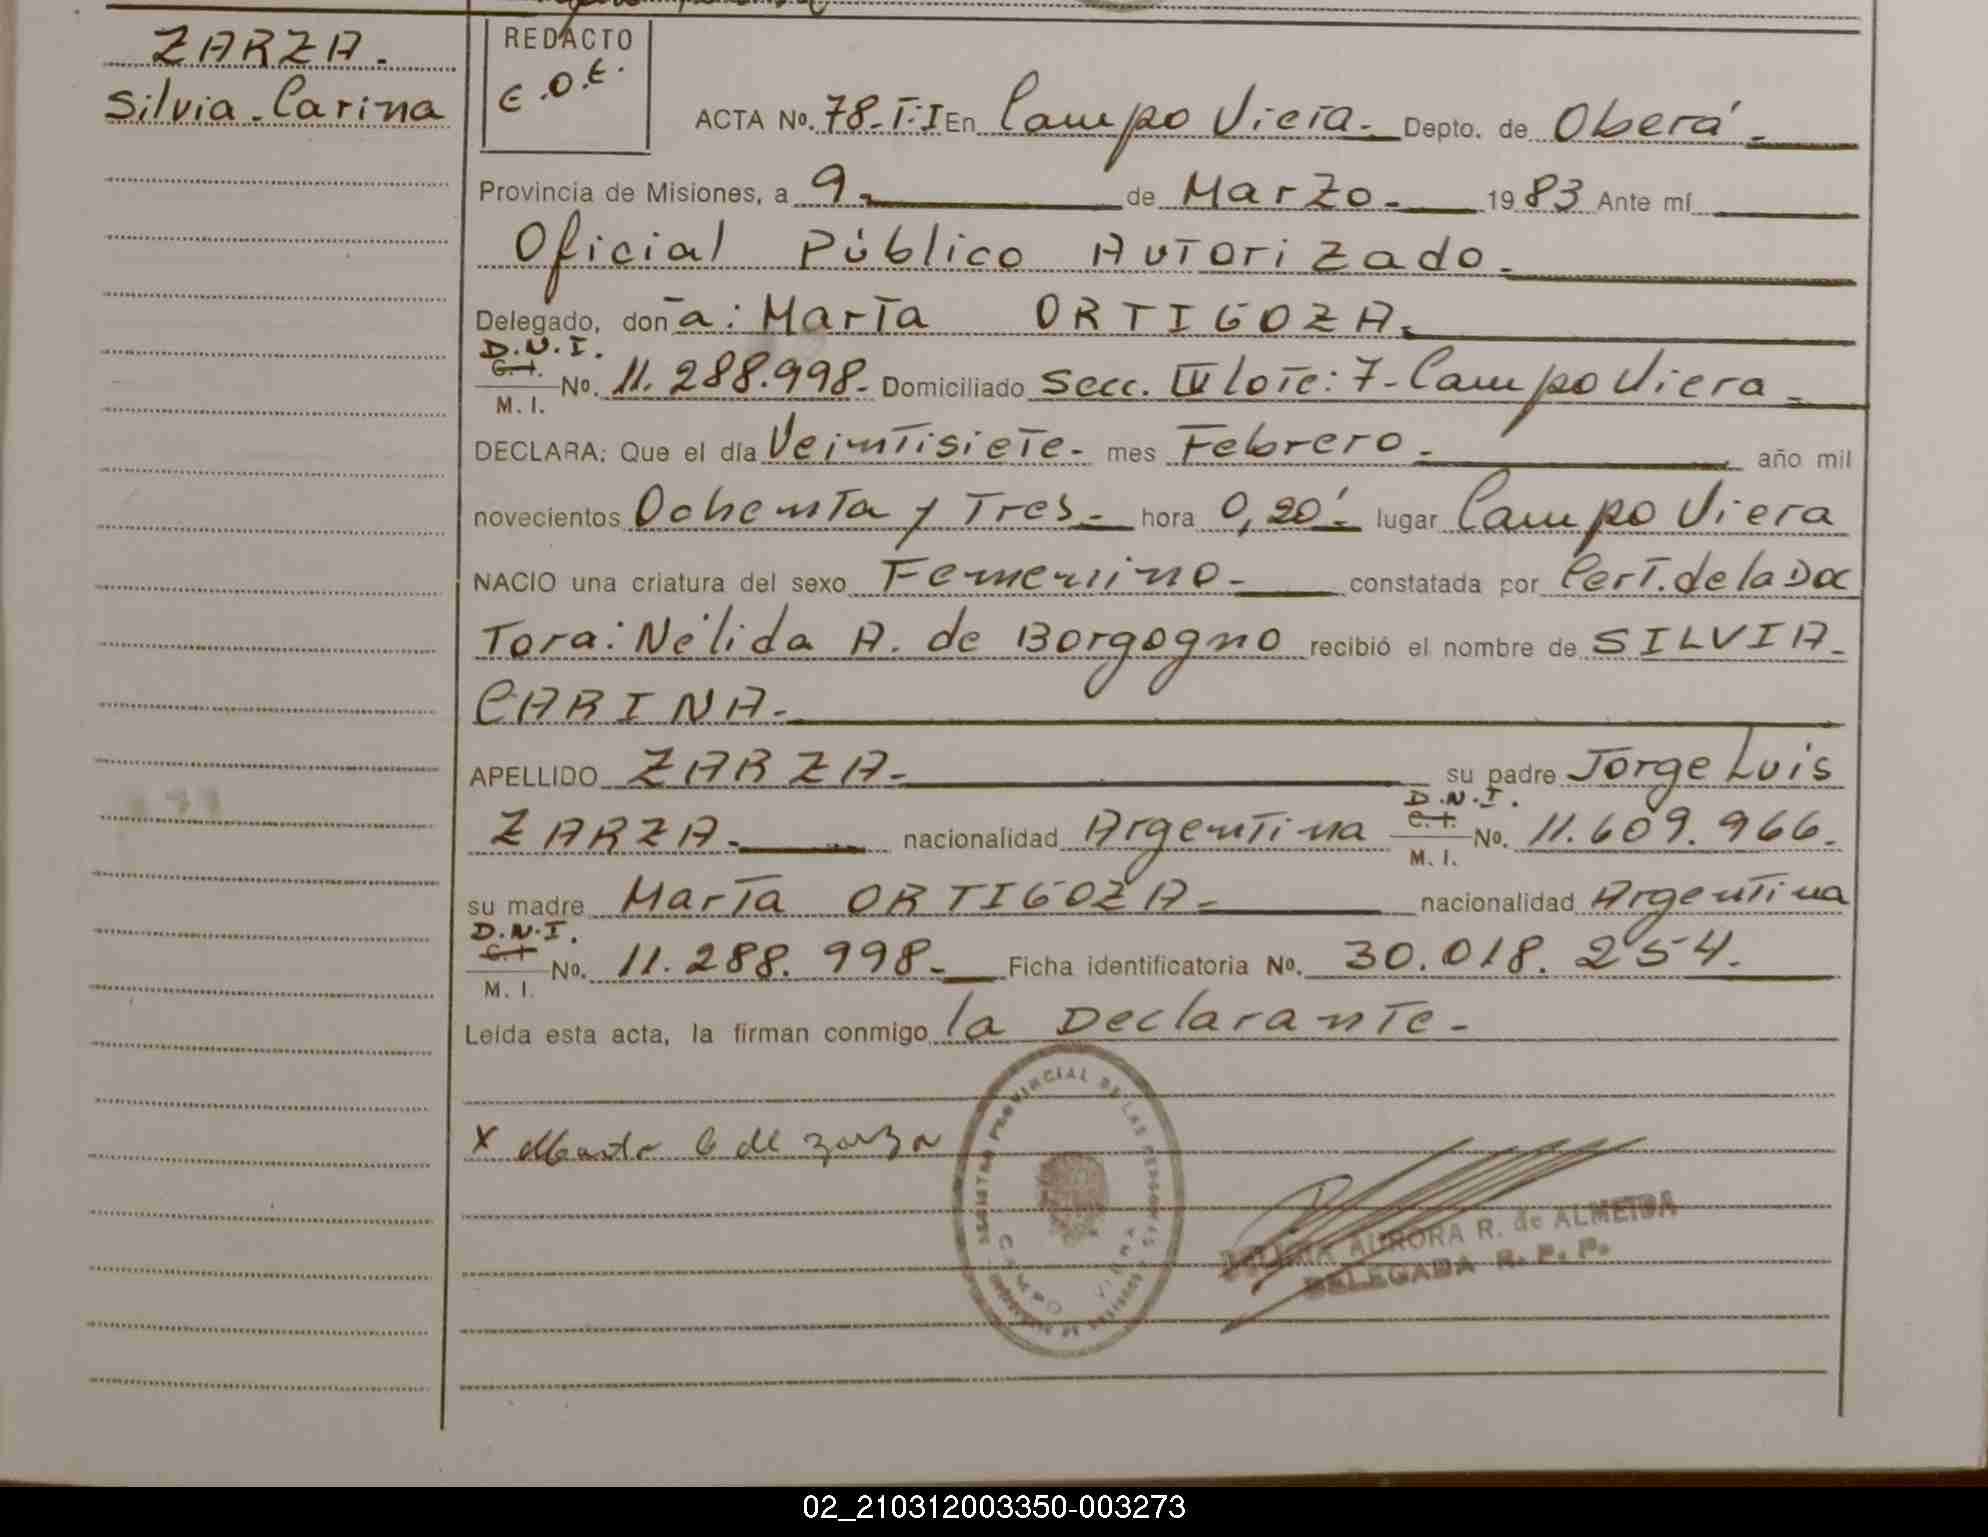 ZARZA.
Silvia. Carina
REDACTO
E.O.E.
ACTA No. 78-T:I En Campo Viera. Depto. de Oberá.
Provincia de Misiones, a 9. de Marzo. 1983 Ante mí
Oficial Público Autorizado.
Delegado, doña: María ORTIGOZA.
D.N.I.
C.I.
M. I.
No. 11.288.998. Domiciliado Secc. IV lote: 7-Campo Viera
DECLARA: Que el día Veintisiete- mes Febrero. año mil
novecientos Ochenta y Tres- hora 0,20' lugar Campo Viera
NACIO una criatura del sexo Femenino- constatada por Cert. de la Doc
Tora: Nélida A. de Borgogno recibió el nombre de SILVIA-
CARINA-
APELLIDO ZARZA- su padre Jorge Luis
ZARZA. nacionalidad Argentina
D.N.I.
C.I.
M. I.
No. 11.609.966.
su madre María ORTIGOZA- nacionalidad Argentina
D.N.I.
C.I.
M. I.
No. 11.288.998- Ficha identificatoria No. 30.018.254.
Leída esta acta, la firman conmigo la Declarante-
X de zarza
REGISTRO PROVINCIAL DE LAS PERSONAS
CAMPO VIERA
AURORA R. de ALMEIDA
DELEGADA R. P. P.
02_210312003350-003273